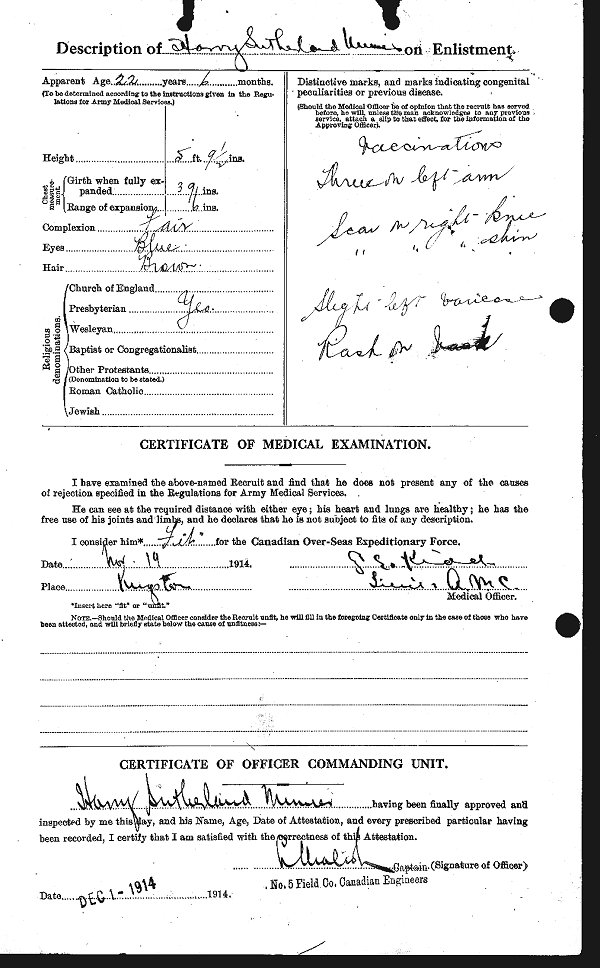 Description of Harry Sutherland on Enlistment.
Apparent Age 22 years 6 months.
(To be determined according to the instructions given in the Regu-
lations for Army Medical Services.)
Height 5 ft. 9½ ins.
Chest measure-ment.
Girth when fully ex-
panded 39 ins.
Range of expansion 6 ins.
Complexion Fair
Eyes Blue
Hair Brown
Religious denominations.
Church of England
Presbyterian Yes.
Wesleyan
Baptist or Congregationalist
Other Protestants
(Denomination to be stated.)
Roman Catholic
Jewish
Distinctive marks, and marks indicating congenital
peculiarities or previous disease.
(Should the Medical Officer be of opinion that the recruit has served
before, he will, unless the man acknowledges to any previous
service, attach a slip to that effect, for the information of the
Approving Officer).
Vaccinations
Three on left arm
Scar on right knee
" " " shin
Slight left
Rash on
CERTIFICATE OF MEDICAL EXAMINATION.
I have examined the above-named Recruit and find that he does not present any of the causes
of rejection specified in the Regulations for Army Medical Services.
He can see at the required distance with either eye; his heart and lungs are healthy; he has the
free use of his joints and limbs, and he declares that he is not subject to fits of any description.
I consider him* Fit for the Canadian Over-Seas Expeditionary Force.
Date Nov. 19 1914.
Place Kingston A.M.C
Medical Officer.
*Insert here "fit" or "unfit."
NOTE.—Should the Medical Officer consider the Recruit unfit, he will fill in the foregoing Certificate only in the case of those who have
been attested, and will briefly state below the cause of unfitness:—
CERTIFICATE OF OFFICER COMMANDING UNIT.
Harry Sutherland having been finally approved and
inspected by me this day, and his Name, Age, Date of Attestation, and every prescribed particular having
been recorded, I certify that I am satisfied with the correctness of this Attestation.
Captain (Signature of Officer)
No. 5 Field Co. Canadian Engineers
Date DEC 1 - 1914 1914.